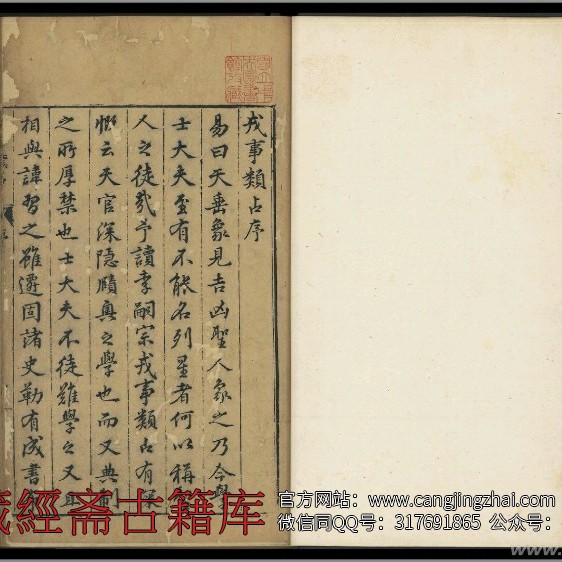 戎事類占序
易曰天垂象見吉凶聖人象之乃今學
士大夫至有不能名列星者何以稱
人之徒哉予讀李嗣宗戎事類占有深
慨云天官深隱賾奧之學也而又典
之所厚禁也士大夫不徒難學之又且
相與諱習之雖遷固諸史勒有成書
藏經斋古籍库
官方网站：www.cangjingzhai.com
微信同QQ号：317691865 公众号：